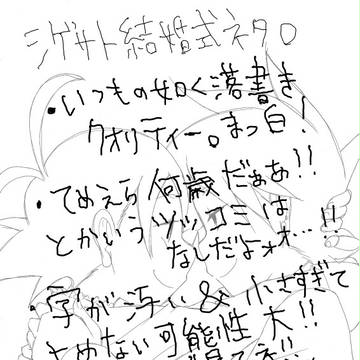 シゲサト結婚式ネタ。
・いつもの如く落書き
クオリティー。まっ白!
・てめえら何歳だぁあ!!
とかいうツッコミは
なしだよォォ…!!
・字が汚い&小さすぎて
よめない可能性大!!